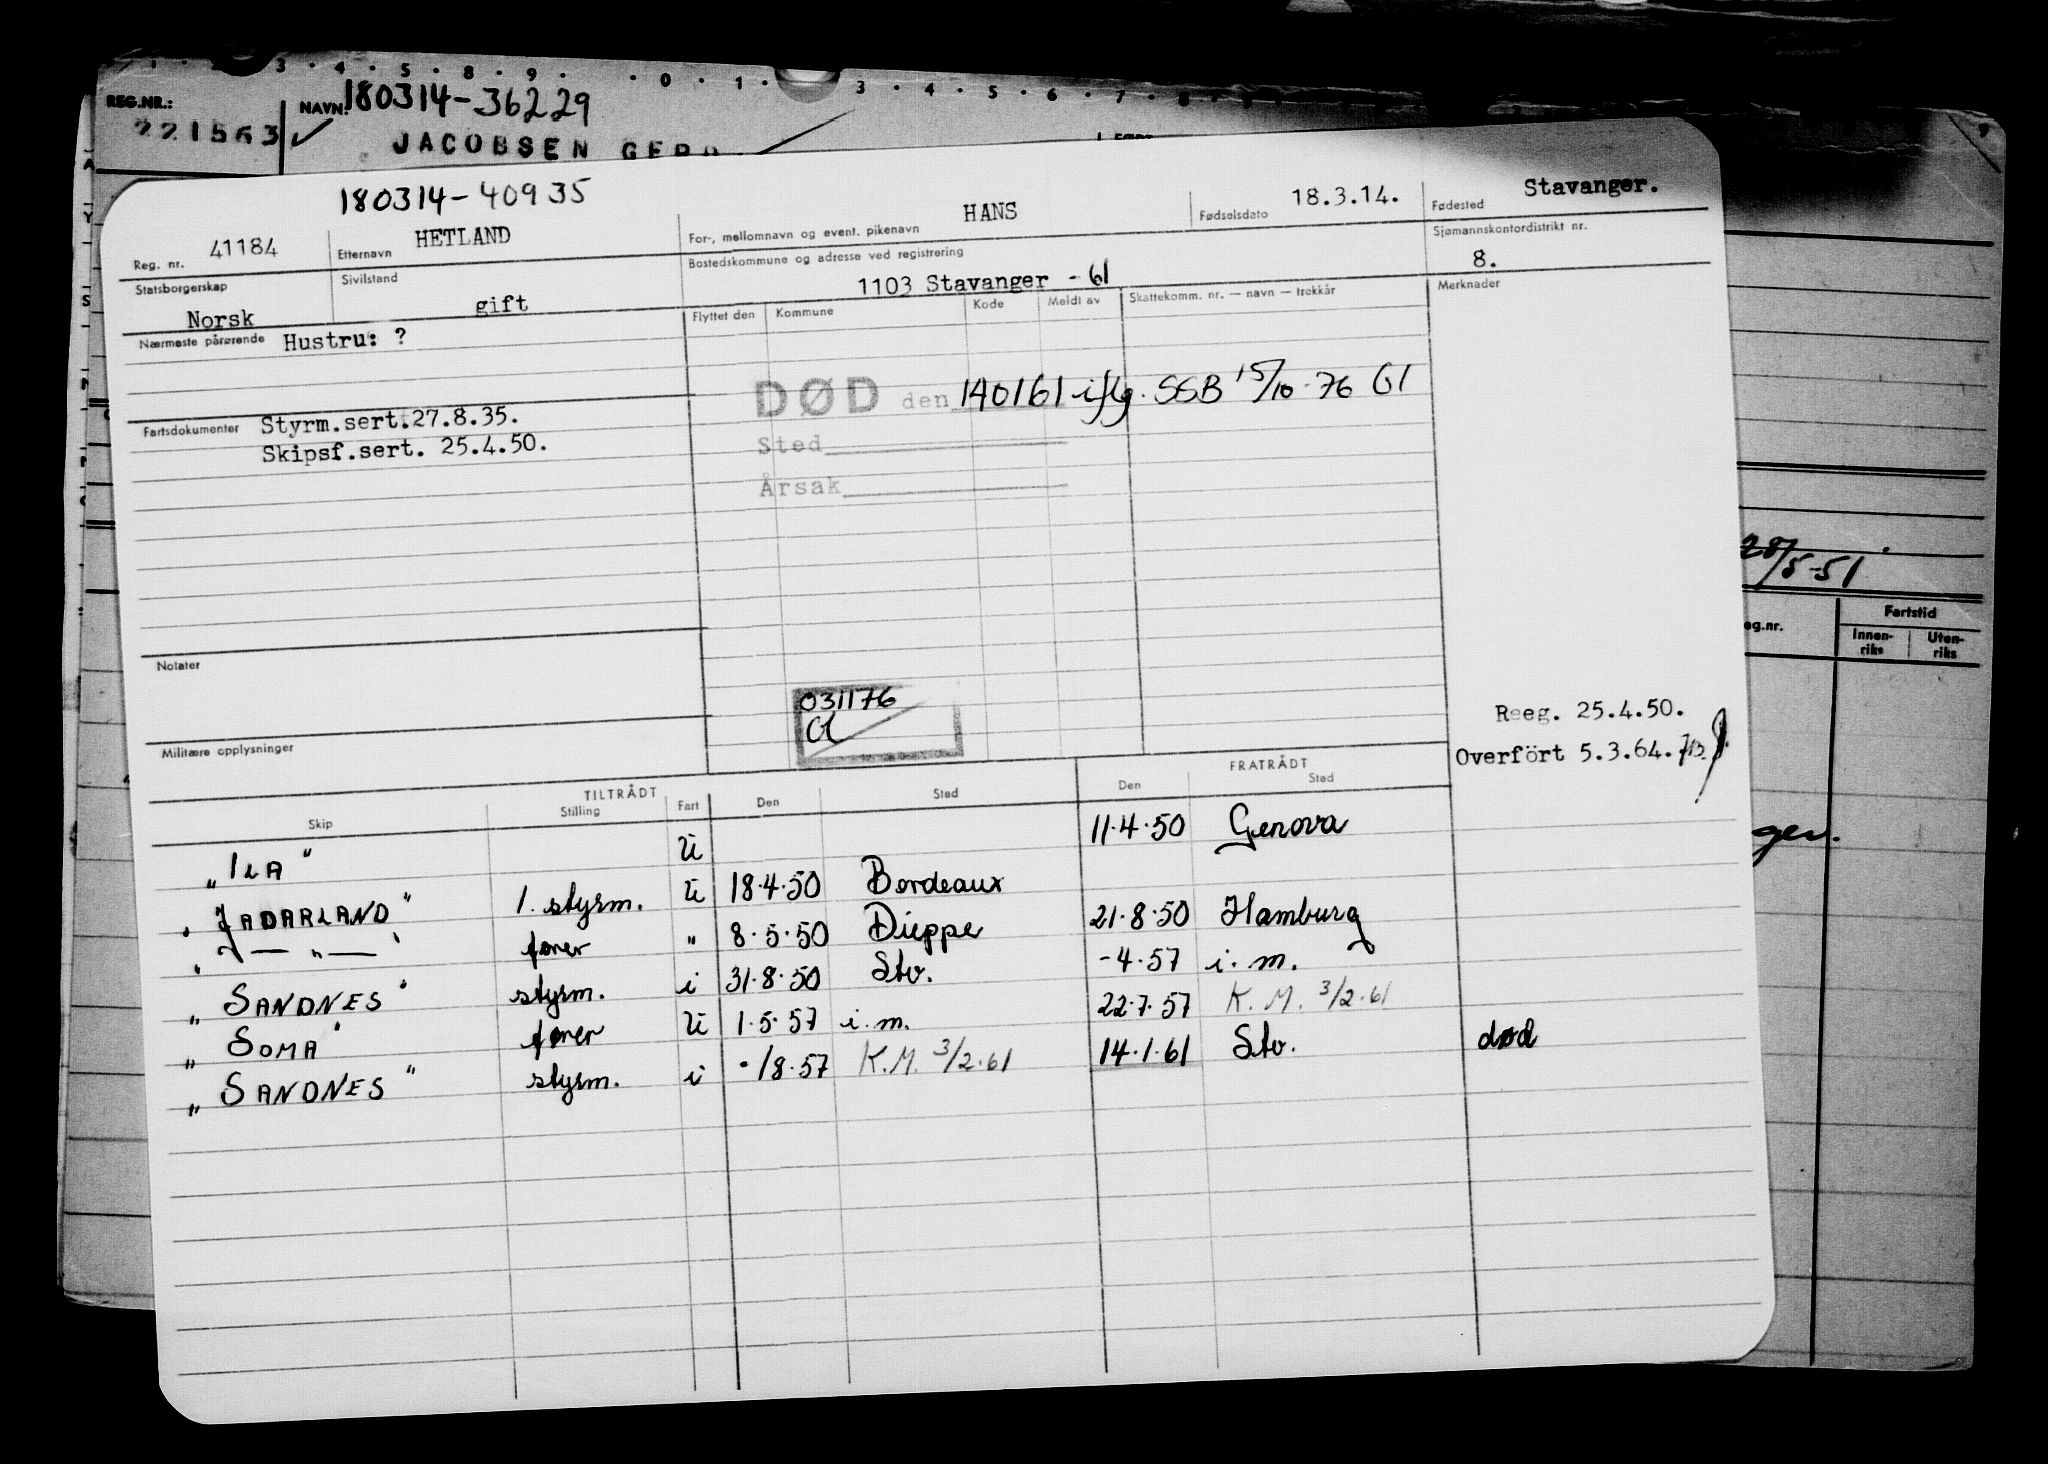 3 . 4 . 5 . 8 . 9 . . 0 . 1 . 3 . 4 . 5 . 6 . 7 . 8
REG.NR.: NAVN: 180314-36229
221563 JACOBSEN GERD
180314-40935
Reg. nr. 41184 Etternavn HETLAND For-, mellomnavn og event. pikenavn HANS Fødselsdato 18.3.14. Fødested Stavanger.
Statsborgerskap Norsk Sivilstand gift Bostedskommune og adresse ved registrering 1103 Stavanger - 61 Sjømannskontordistrikt nr. 8.
Nærmeste pårørende Hustru: ? Flyttet den Kommune Kode Meldt av Skattekomm. nr. — navn — trekkår Merknader
DØD den 140161 iflg. SSB 15/10-76 G1
Fartsdokumenter Styrm.sert.27.8.35. Sted
Skipsf.sert. 25.4.50. Årsak
28/5-51
eg.nr. Fartstid
Innen-riks Uten-riks
Notater
031176
Militære opplysninger
Reeg. 25.4.50.
Overfört 5.3.64.
TILTRÅDT FRATRÅDT
Skip Stilling Fart Den Sted Den Sted
„ILA" U 11.4.50 Genova
„JADARLAND" 1. styrm. U 18.4.50 Bordeaux
„ — „ — " fører " 8.5.50 Dieppe 21.8.50 Hamburg
„SANDNES" styrm. i 31.8.50 Stv. -4.57 i.m.
„SOMA" fører U 1.5.57 i.m. 22.7.57 K.M. 3/2.61
„SANDNES" styrm. i -/8.57 K.M. 3/2.61 14.1.61 Stv. død
ger.